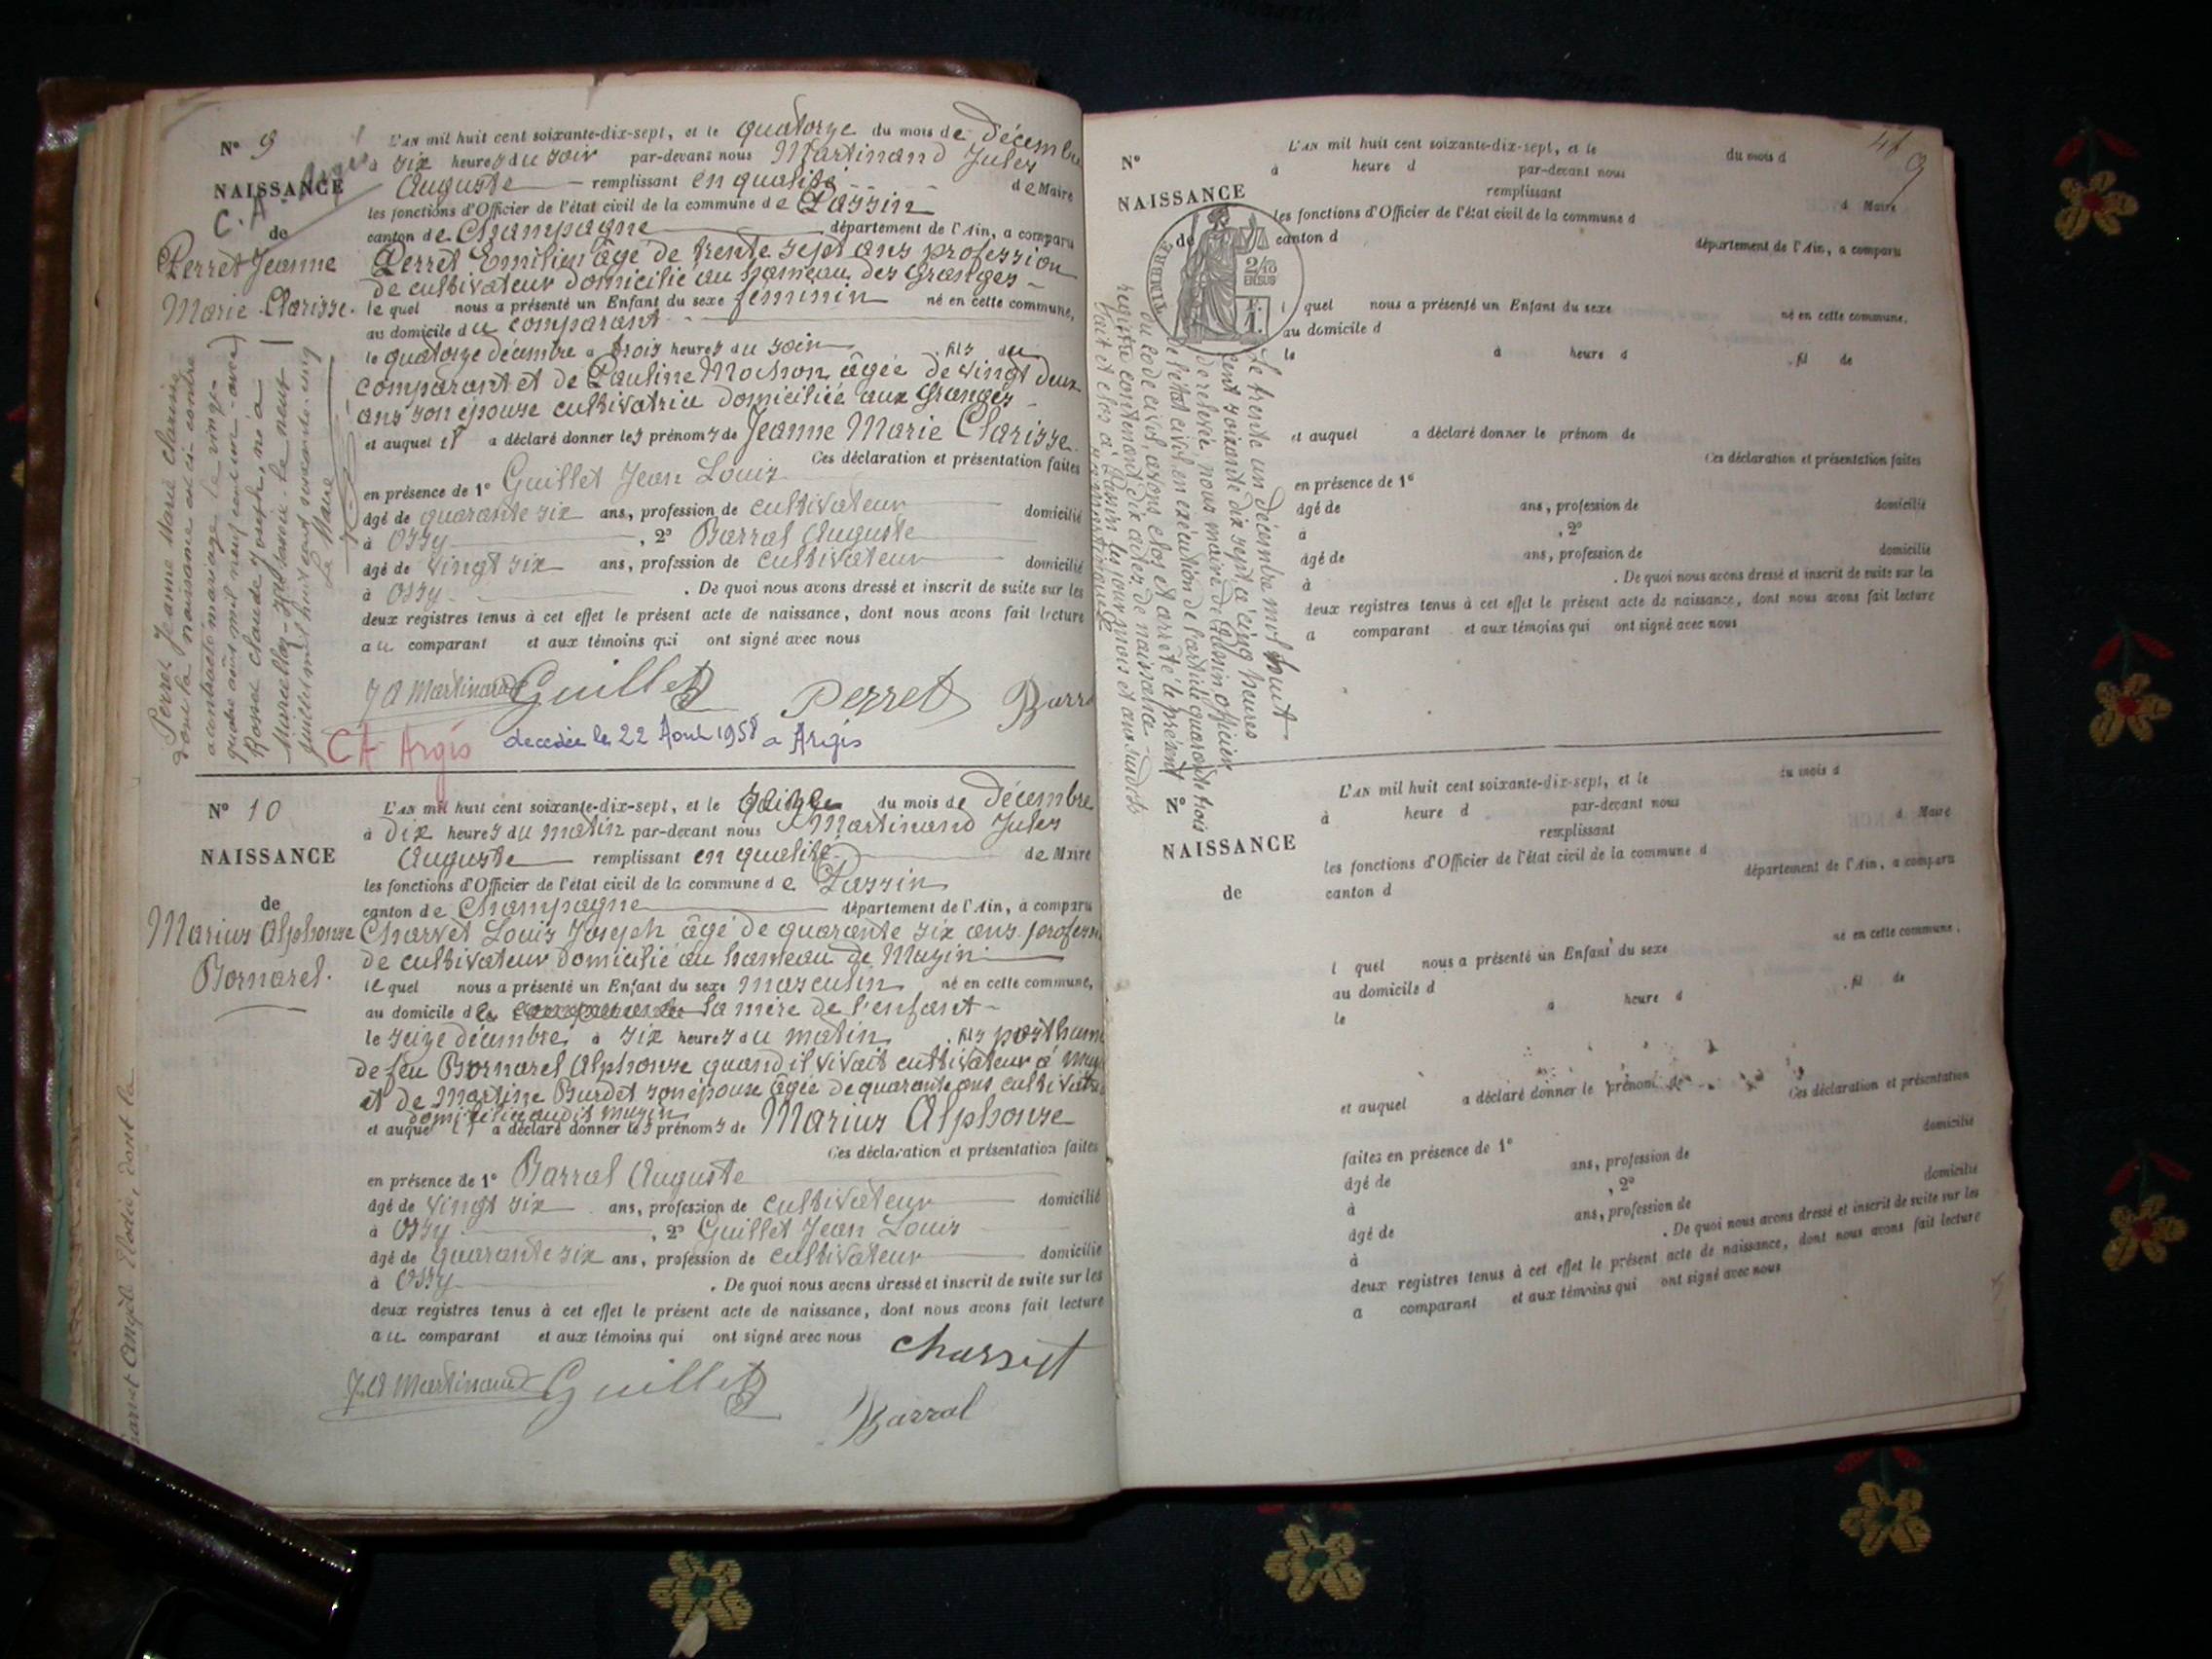 N° 9
NAISSANCE
C.A.
de
Perret Jeanne
Marie Clarisse.
L'AN mil huit cent soixante-dix-sept, et le quatorze du mois de Décembre
à six heures du soir par-devant nous Martinand Jules
Auguste remplissant en qualité de Maire
les fonctions d'Officier de l'état civil de la commune de Passin
canton de Champagne département de l'Ain, a comparu
Perret Emilien âgé de trente sept ans profession
de cultivateur domicilié au hameau des Granges
lequel nous a présenté un Enfant du sexe féminin né en cette commune,
au domicile du comparant
le quatorze décembre à trois heures du soir fils du
comparant et de Pauline Mochon âgée de vingt deux
ans son épouse cultivatrice domiciliée aux Granges
et auquel il a déclaré donner les prénoms de Jeanne Marie Clarisse.
Ces déclaration et présentation faites
en présence de 1° Guillet Jean Louis
âgé de quarante six ans, profession de cultivateur domicilié
à Ossy, 2° Barral Auguste
âgé de vingt six ans, profession de cultivateur domicilié
à Ossy. De quoi nous avons dressé et inscrit de suite sur les
deux registres tenus à cet effet le présent acte de naissance, dont nous avons fait lecture
au comparant et aux témoins qui ont signé avec nous
J A Martinand Guillet Perret Barra
CA Argis decedée le 22 Aout 1958 a Argis
Perret Jeanne Marie Clarisse
dont la naissance est ci-contre
a contracté mariage le vingt-
quatre août mil neuf cent un avec
Rosset Claude Joseph, né à
le neuf
mil huit cent soixante-cinq
Le Maire
N° 10
NAISSANCE
de
Marius Alphonse
Bornarel.
L'AN mil huit cent soixante-dix-sept, et le seize du mois de Décembre
à dix heures du matin par-devant nous Martinand Jules
Auguste remplissant en qualité de Maire
les fonctions d'Officier de l'état civil de la commune de Passin
canton de Champagne département de l'Ain, a comparu
Charvet Louis Joseph âgé de quarante six ans profession
de cultivateur domicilié au hameau de Muzin
lequel nous a présenté un Enfant du sexe masculin né en cette commune,
au domicile de la mère de l'enfant
le seize décembre à six heures du matin, fils posthume
de feu Bornarel Alphonse quand il vivait cultivateur à Muzin
et de Martine Burdet son épouse âgée de quarante ans cultivatrice
domiciliée audit Muzin
et auquel il a déclaré donner les prénoms de Marius Alphonse
Ces déclaration et présentation faites
en présence de 1° Barral Auguste
âgé de vingt six ans, profession de cultivateur domicilié
à Ossy, 2° Guillet Jean Louis
âgé de quarante six ans, profession de cultivateur domicilié
à Ossy. De quoi nous avons dressé et inscrit de suite sur les
deux registres tenus à cet effet le présent acte de naissance, dont nous avons fait lecture
au comparant et aux témoins qui ont signé avec nous
Charvet
J. A Martinand Guillet
Barral
Charvet Angèle Elodie, dont la
9
N°
NAISSANCE
de
TIMBRE
2/10
EN SUS
1f.
L'AN mil huit cent soixante-dix-sept, et le du mois d
à heure d par-devant nous
remplissant d Maire
les fonctions d'Officier de l'état civil de la commune d
canton d département de l'Ain, a comparu
l quel nous a présenté un Enfant du sexe né en cette commune,
au domicile d
le à heure d , fil de
et auquel a déclaré donner le prénom de
Ces déclaration et présentation faites
en présence de 1°
âgé de ans, profession de domicilié
à , 2°
âgé de ans, profession de domicilié
à . De quoi nous avons dressé et inscrit de suite sur les
deux registres tenus à cet effet le présent acte de naissance, dont nous avons fait lecture
a comparant et aux témoins qui ont signé avec nous
Le trente un Décembre mil huit
cent soixante dix sept, à cinq heures
de relevée, nous maire de Passin officier
de l'état civil, en exécution de l'article quarante trois
du code civil, avons clos et arrêté le présent
registre contenant dix actes de naissance
Fait et clos à Passin les jour, mois et ans susdits
J A Martinand
N°
NAISSANCE
de
L'AN mil huit cent soixante-dix-sept, et le du mois d
à heure d par-devant nous
remplissant d Maire
les fonctions d'Officier de l'état civil de la commune d
canton d département de l'Ain, a comparu
l quel nous a présenté un Enfant du sexe né en cette commune,
au domicile d
le à heure d , fil de
et auquel a déclaré donner le prénom de
Ces déclaration et présentation
faites en présence de 1° domicilié
âgé de ans, profession de
à , 2° domicilié
âgé de ans, profession de
à . De quoi nous avons dressé et inscrit de suite sur les
deux registres tenus à cet effet le présent acte de naissance, dont nous avons fait lecture
a comparant et aux témoins qui ont signé avec nous